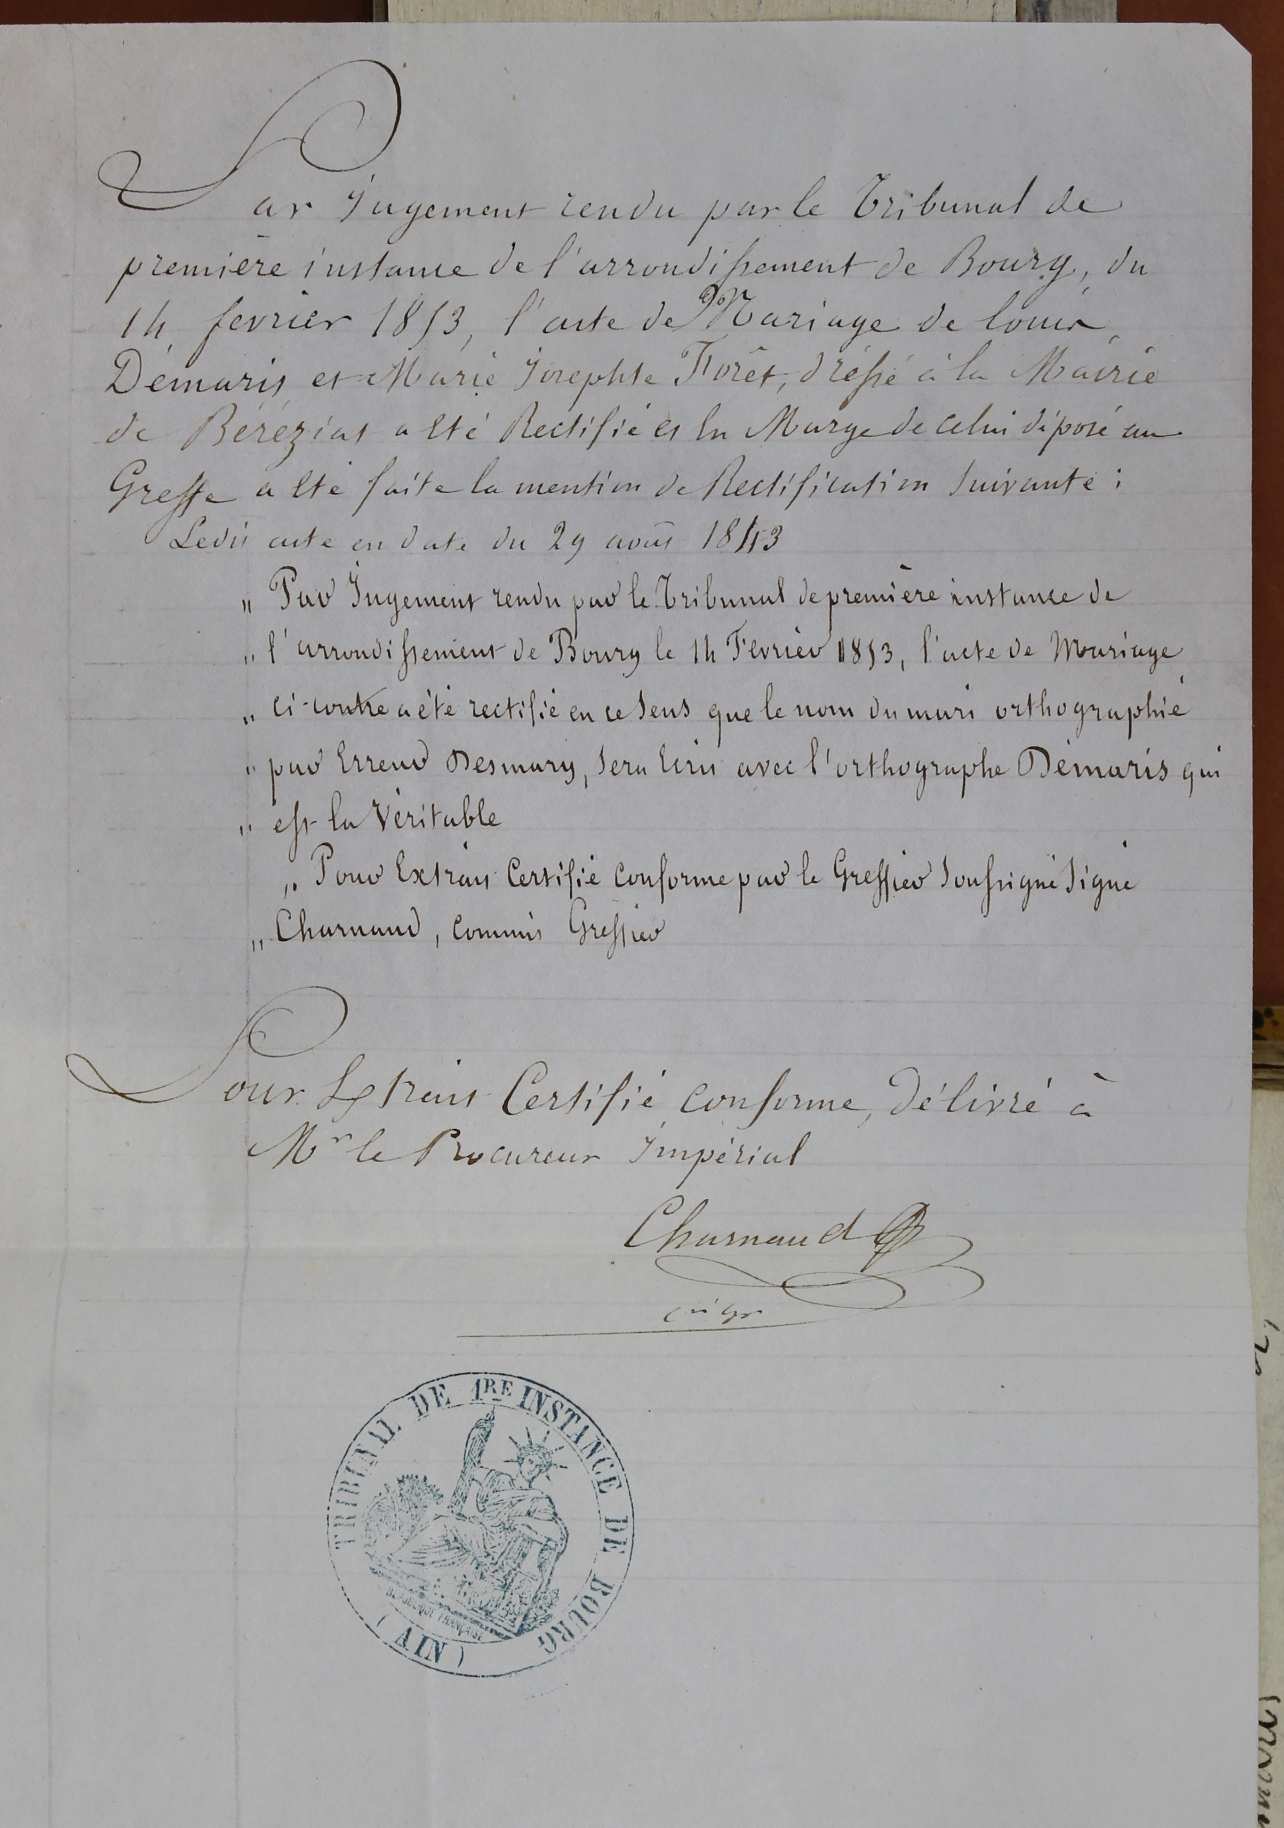 Par Jugement rendu par le Tribunal de
première instance de l'arrondissement de Bourg, du
14 fevrier 1853, l'acte de Mariage de Louis
Démaris et Marie Josephte Forêt, dréssé à la Mairie
de Béréziat a été Rectifié et En Marge de celui déposé au
Greffe a été faite la mention de Rectification Suivante :
Ledit acte en date du 29 août 1843
„ Par Jugement rendu par le Tribunal de première instance de
„ l'arrondissement de Bourg le 14 Février 1853, l'acte de Mariage
„ ci-contre a été rectifié en ce Sens que le nom du mari orthographié
„ par Erreur Desmary, Sera Ecrit avec l'orthographe Démaris qui
„ est la Véritable
„ Pour Extrait Certifié Conforme par le Greffier Soussigné Signé
„ Charnaud, commis Greffier
Pour Extrait Certifié conforme, Délivré à
Mr le Procureur Impérial
Charnaud
cis gr
TRIBUNAL DE 1RE INSTANCE DE BOURG
RÉPUBLIQUE FRANÇAISE
(AIN)